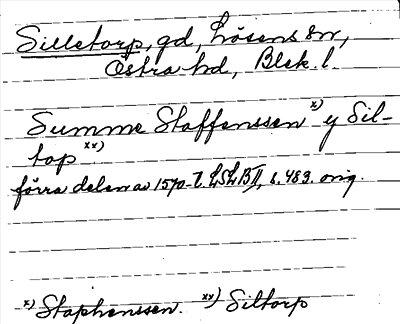 Silletorp, gd, Lösens sn,
Östra hd, Blek. l.
Summe Staffenssen x) y Sil-
top xx)
förra delen av 1570-t. LSLB II, s. 483. orig.
x) Staphenssen. xx) Siltorp